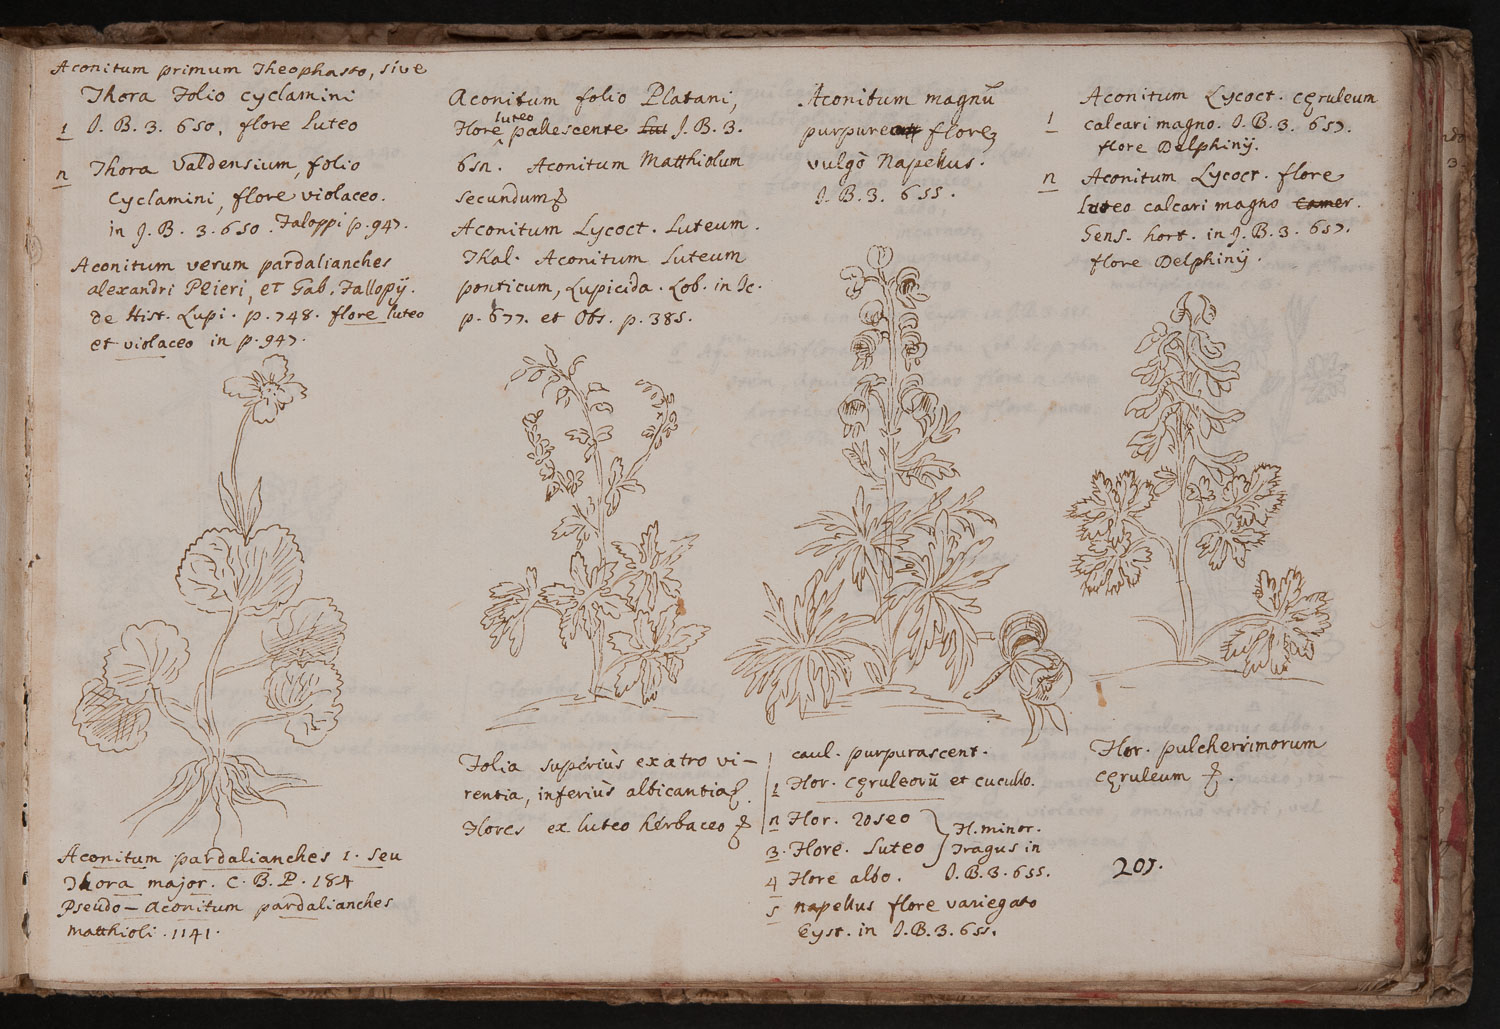 Aconitum primum Theophasto, sive
Thora Folio cyclamini
1 J. B. 3. 650, flore Luteo
n Thora Valdensium, folio
Cyclamini, flore violaceo.
in J. B. 3. 650. Faloppi p. 947.
Aconitum verum pardalianches
alexandri Plieri, et Gab. Fallopÿ.
de Hist. Lupi. p. 748. flore luteo
et violaceo in p. 947.
Aconitum pardalianches 1. seu
Thora major. C. B. P. 184
Pseudo-Aconitum pardalianches
Matthioli. 1141.
Aconitum folio Platani,
luteo
Flore pallescente Lut J. B. 3.
65n. Aconitum Matthiolum
secundum
Aconitum Lycoct. Luteum.
Thal. Aconitum Luteum
ponticum, Lupicida. Lob. in Ic.
p. 677. et Obs. p. 385.
Folia superiùs ex atro vi-
rentia, inferiùs albicantia.
Flores ex luteo herbaceo
Aconitum magnū
purpureo flore,
vulgò Napellus.
J. B. 3. 655.
caul. purpurascent.
1 Flor. cęruleorū et cucullo.
n Flor. roseo
3. Flore. Luteo
H. minor.
Tragus in
J. B. 3. 655.
4 Flore albo.
5 napellus flore variegato
Eyst. in J. B. 3. 655.
1 Aconitum Lycoct. cęruleum
calcari magno. J. B. 3. 657.
flore Delphinÿ.
n Aconitum Lycoct. flore
Luteo calcari magno Camer.
Gens. hort. in J. B. 3. 657.
flore Delphinÿ.
Flor. pulcherrimorum
cęruleum
201.